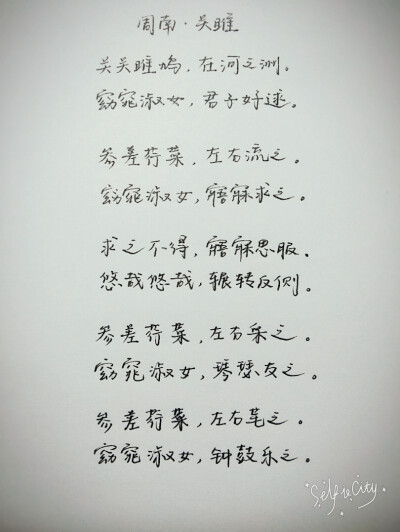 周南·关雎
关关雎鸠,在河之洲。
窈窕淑女,君子好逑。
参差荇菜,左右流之。
窈窕淑女,寤寐求之。
求之不得,寤寐思服。
悠哉悠哉,辗转反侧。
参差荇菜,左右采之。
窈窕淑女,琴瑟友之。
参差荇菜,左右芼之。
窈窕淑女,钟鼓乐之。
Selfie City